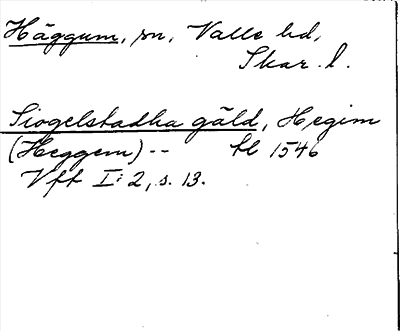 Häggum, sn, Valle hd,
Skar. l.
Siogelstadha gäld, Hegim
(Heggem) -- hl 1546
Vft I: 2, s. 13.